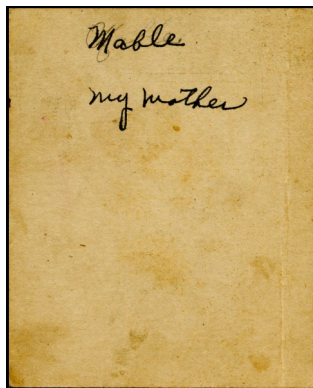 Mable
My Mother